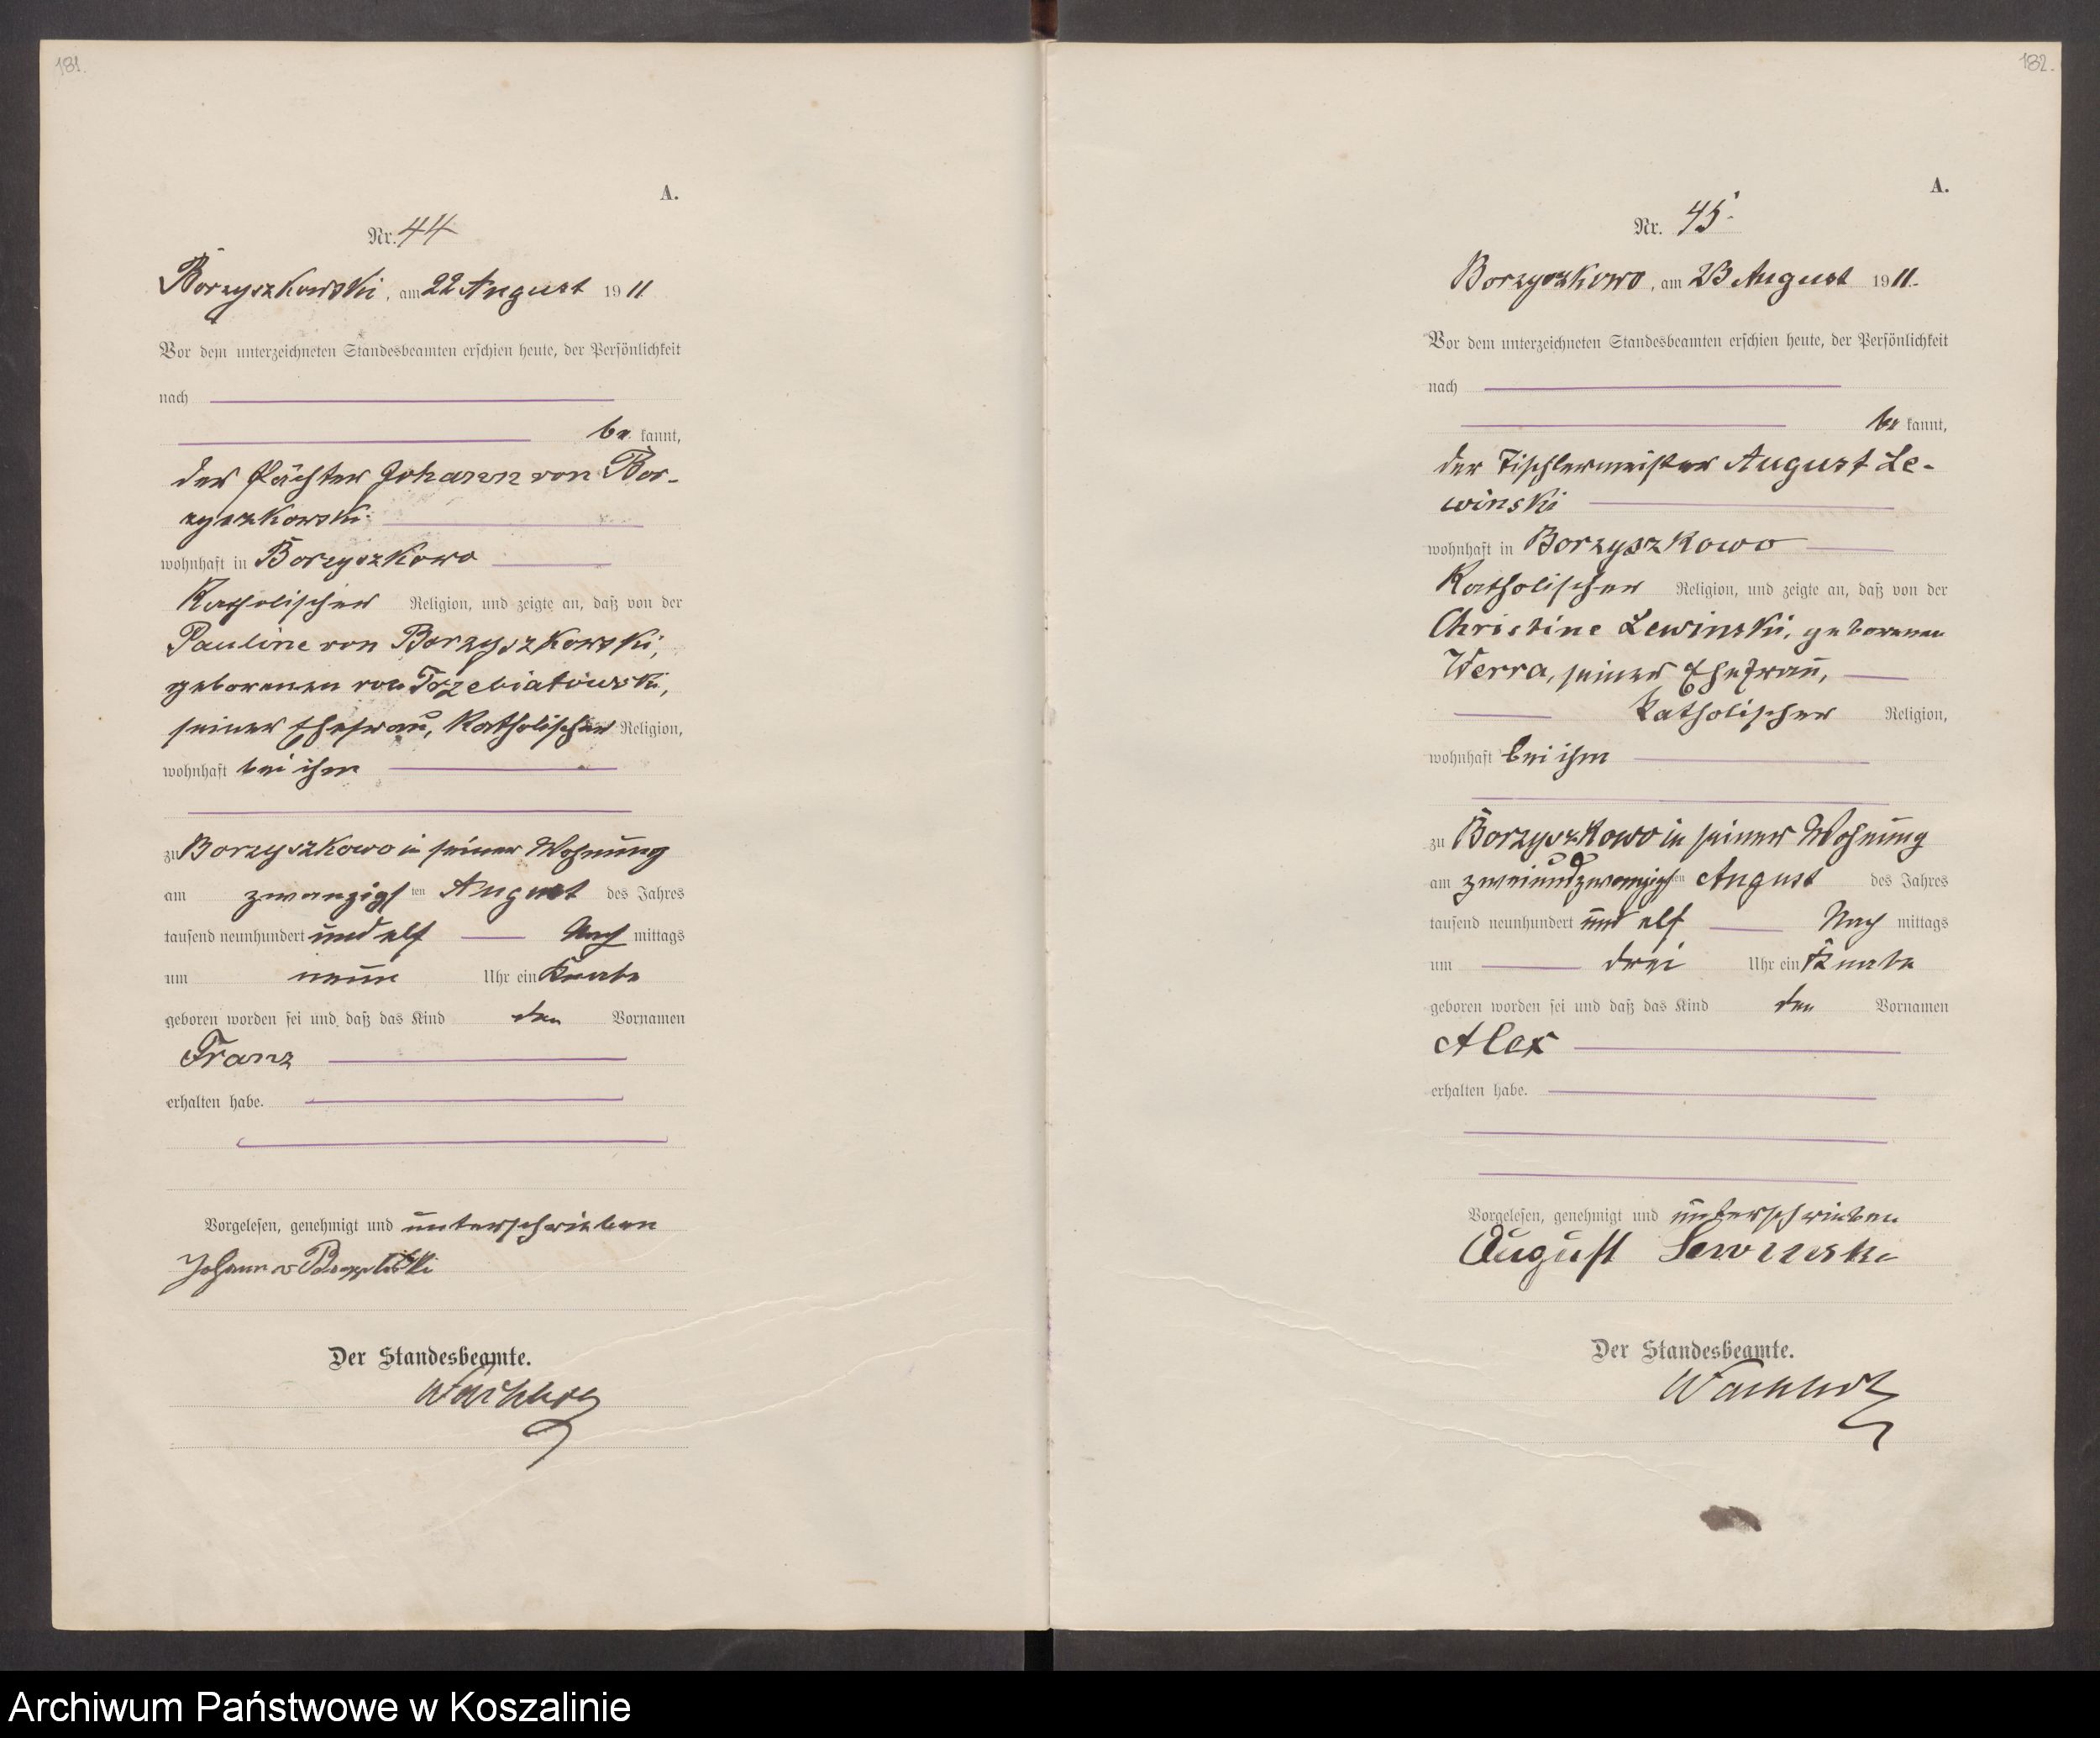 181.
A.
Nr. 44
Borzyszkowski, am 22 August 1911
Vor dem unterzeichneten Standesbeamten erschien heute, der Persönlichkeit
nach
be kannt,
der Pächter Johann von Bor-
zyszkowski
wohnhaft in Borzyszkowo
Katholischer Religion, und zeigte an, daß von der
Pauline von Borzyszkowski,
geborenen von Trzebiatowski,
seiner Ehefrau, Katholischer Religion,
wohnhaft bei ihm
zu Borzyszkowo in seiner Wohnung
am zwanzigsten August des Jahres
tausend neunhundert und elf Nach mittags
um neun Uhr ein Knabe
geboren worden sei und daß das Kind den Vornamen
Franz
erhalten habe.
Vorgelesen, genehmigt und unterschrieben
Johann v
Der Standesbeamte.
182.
A.
Nr. 45
Borzyszkowo, am 23 August 1911.
Vor dem unterzeichneten Standesbeamten erschien heute, der Persönlichkeit
nach
be kannt,
der Tischlermeister August Le-
winski
wohnhaft in Borzyszkowo
Katholischer Religion, und zeigte an, daß von der
Christine Lewinski, geborenen
Werra, seiner Ehefrau,
Katholischer Religion,
wohnhaft bei ihm
zu Borzyszkowo in seiner Wohnung
am zweiundzwanzigsten August des Jahres
tausend neunhundert und elf Nach mittags
um drei Uhr ein Knabe
geboren worden sei und daß das Kind den Vornamen
Alex
erhalten habe.
Vorgelesen, genehmigt und unterschrieben
August Lewinski
Der Standesbeamte.
Archiwum Państwowe w Koszalinie